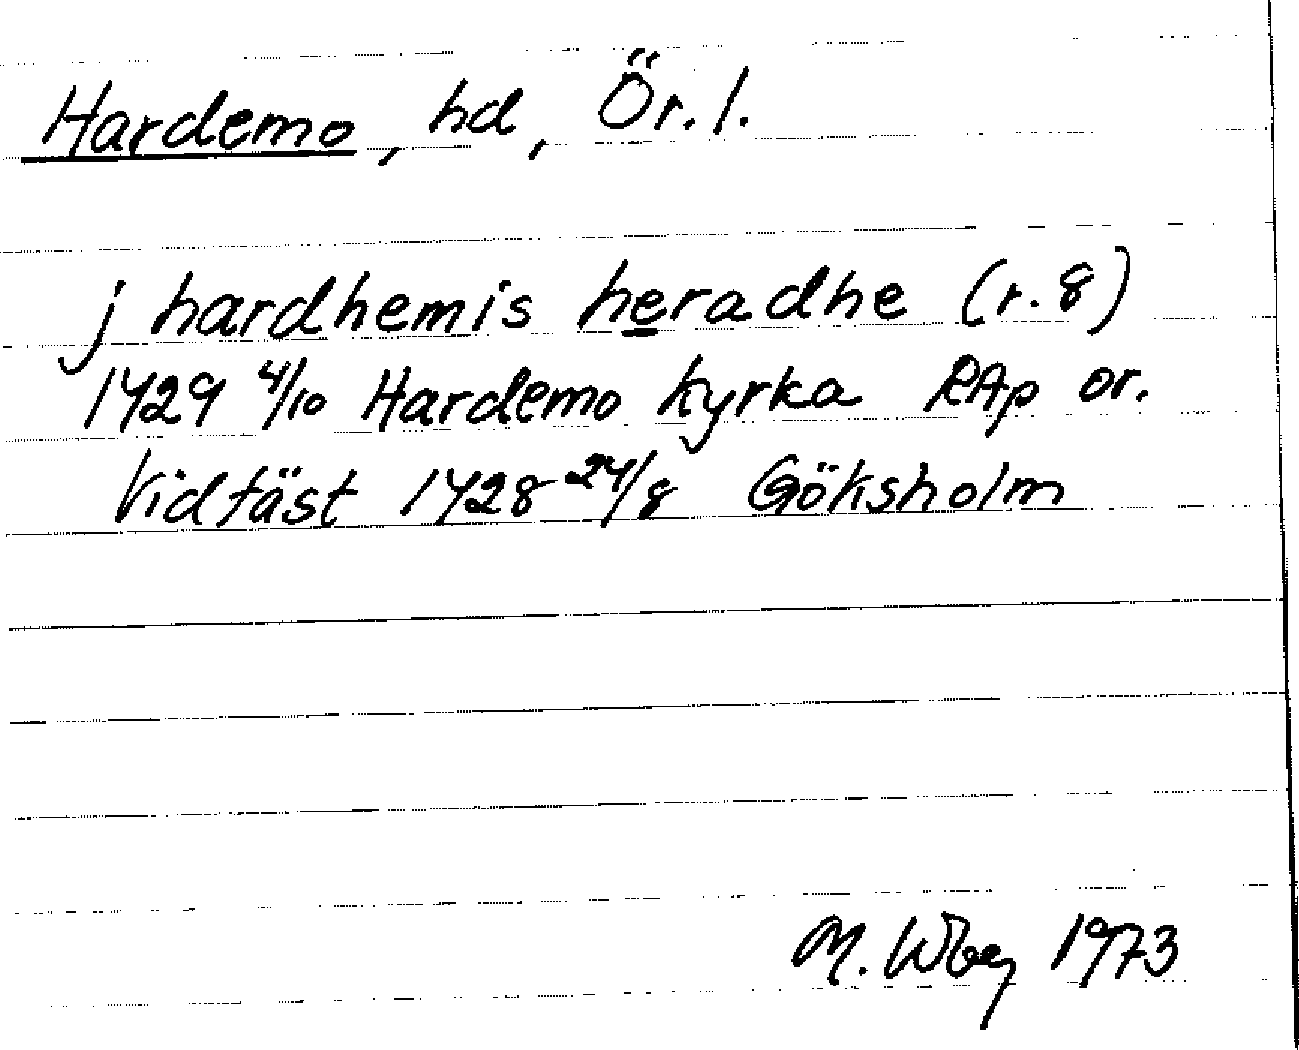 Hardemo, hd, Ör. l.
j hardhemis heradhe (r. 8)
1429 4/10 Hardemo kyrka RAp or.
Vidfäst 1428 24/8 Göksholm
M. Wbg 1973